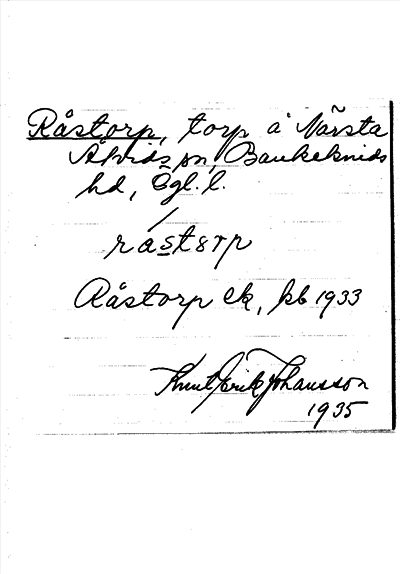 Råstorp, torp å Närsta
Åtvids sn, Bankekinds
hd, Ögl. l.
råstorp
Råstorp ek, kb 1933
Knut Erik Johansson
1935